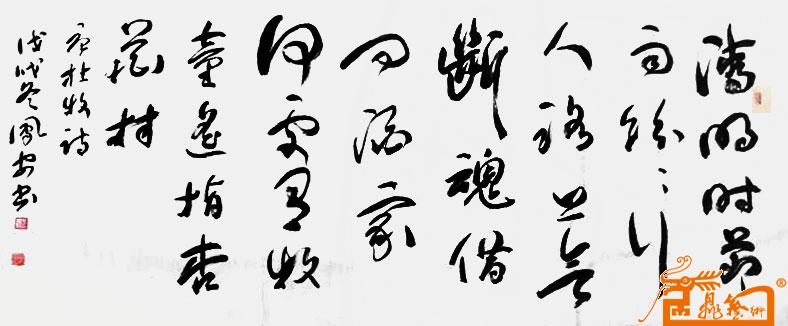 清明时节
雨纷々行
人路上欲
断魂借
问酒家
何处有牧
童遥指杏
花村
唐杜牧诗
戊戌冬凤安书